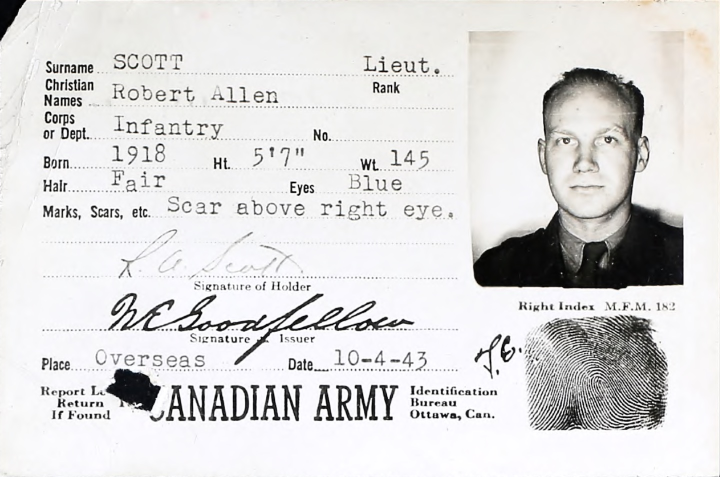 Surname SCOTT Lieut.
Christian Names Robert Allen Rank
Corps or Dept. Infantry No.
Born 1918 Ht. 5'7" Wt. 145
Hair Fair Eyes Blue
Marks, Scars, etc. Scar above right eye.
R. A. Scott
Signature of Holder
W E Goodfellow
Signature Issuer
Place Overseas Date 10-4-43
Report
Return
If Found
CANADIAN ARMY
Identification
Bureau
Ottawa, Can.
Right Index M.F.M. 182